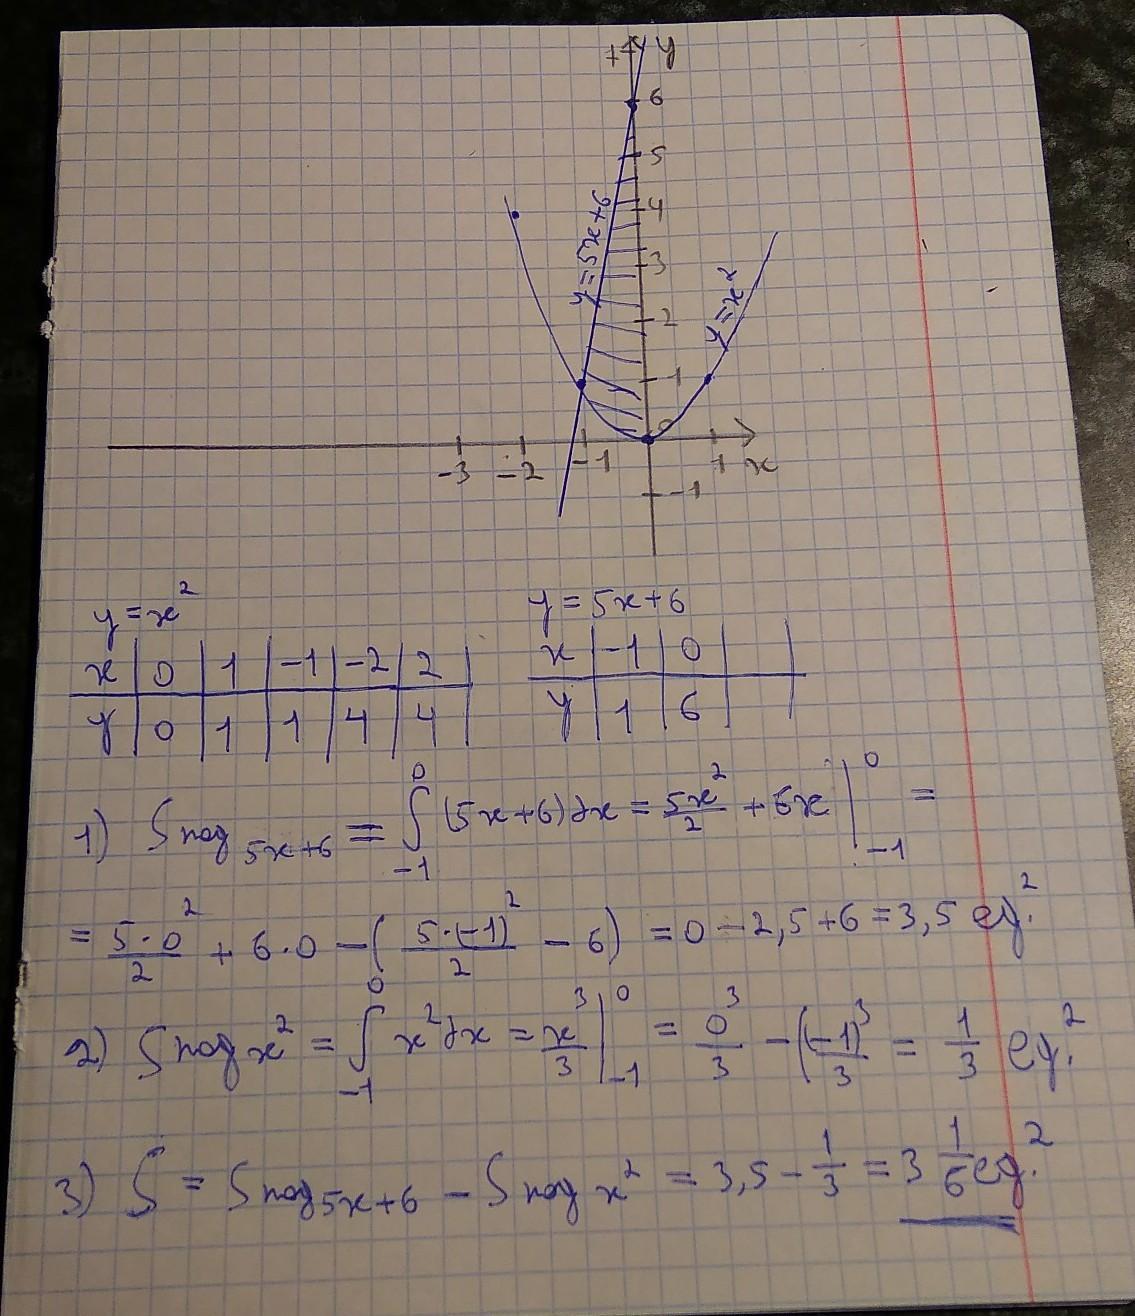 + y
6
5
4
3
2
1
0
-3 -2 -1 1 x
-1
y=5x+6
y=x²
y=x²
x | 0 | 1 | -1 | -2 | 2
y | 0 | 1 | 1 | 4 | 4
y=5x+6
x | -1 | 0
y | 1 | 6
1) Sпод 5x+6 = ∫₋₁⁰ (5x+6)dx = 5x²/2 + 6x |₋₁⁰ =
= 5·0²/2 + 6·0 - (5·(-1)²/2 - 6) = 0 - 2,5+6 = 3,5 ед.²
2) Sпод x² = ∫₋₁⁰ x²dx = x³/3 |₋₁⁰ = 0³/3 - (-1)³/3 = 1/3 ед.²
3) S = Sпод 5x+6 - Sпод x² = 3,5 - 1/3 = 3 1/6 ед.²